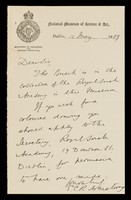 National Museum of Science & Art,
Dublin 12 May 1909
Dear Sir
This Brooch is in the
collection of the Royal Irish
Academy in this Museum
If you wish for a
coloured drawing you
should apply to the
Secretary, Royal Irish
Academy, 19 Dawson St.
Dublin, for permission
to have one made
E C R Armstrong